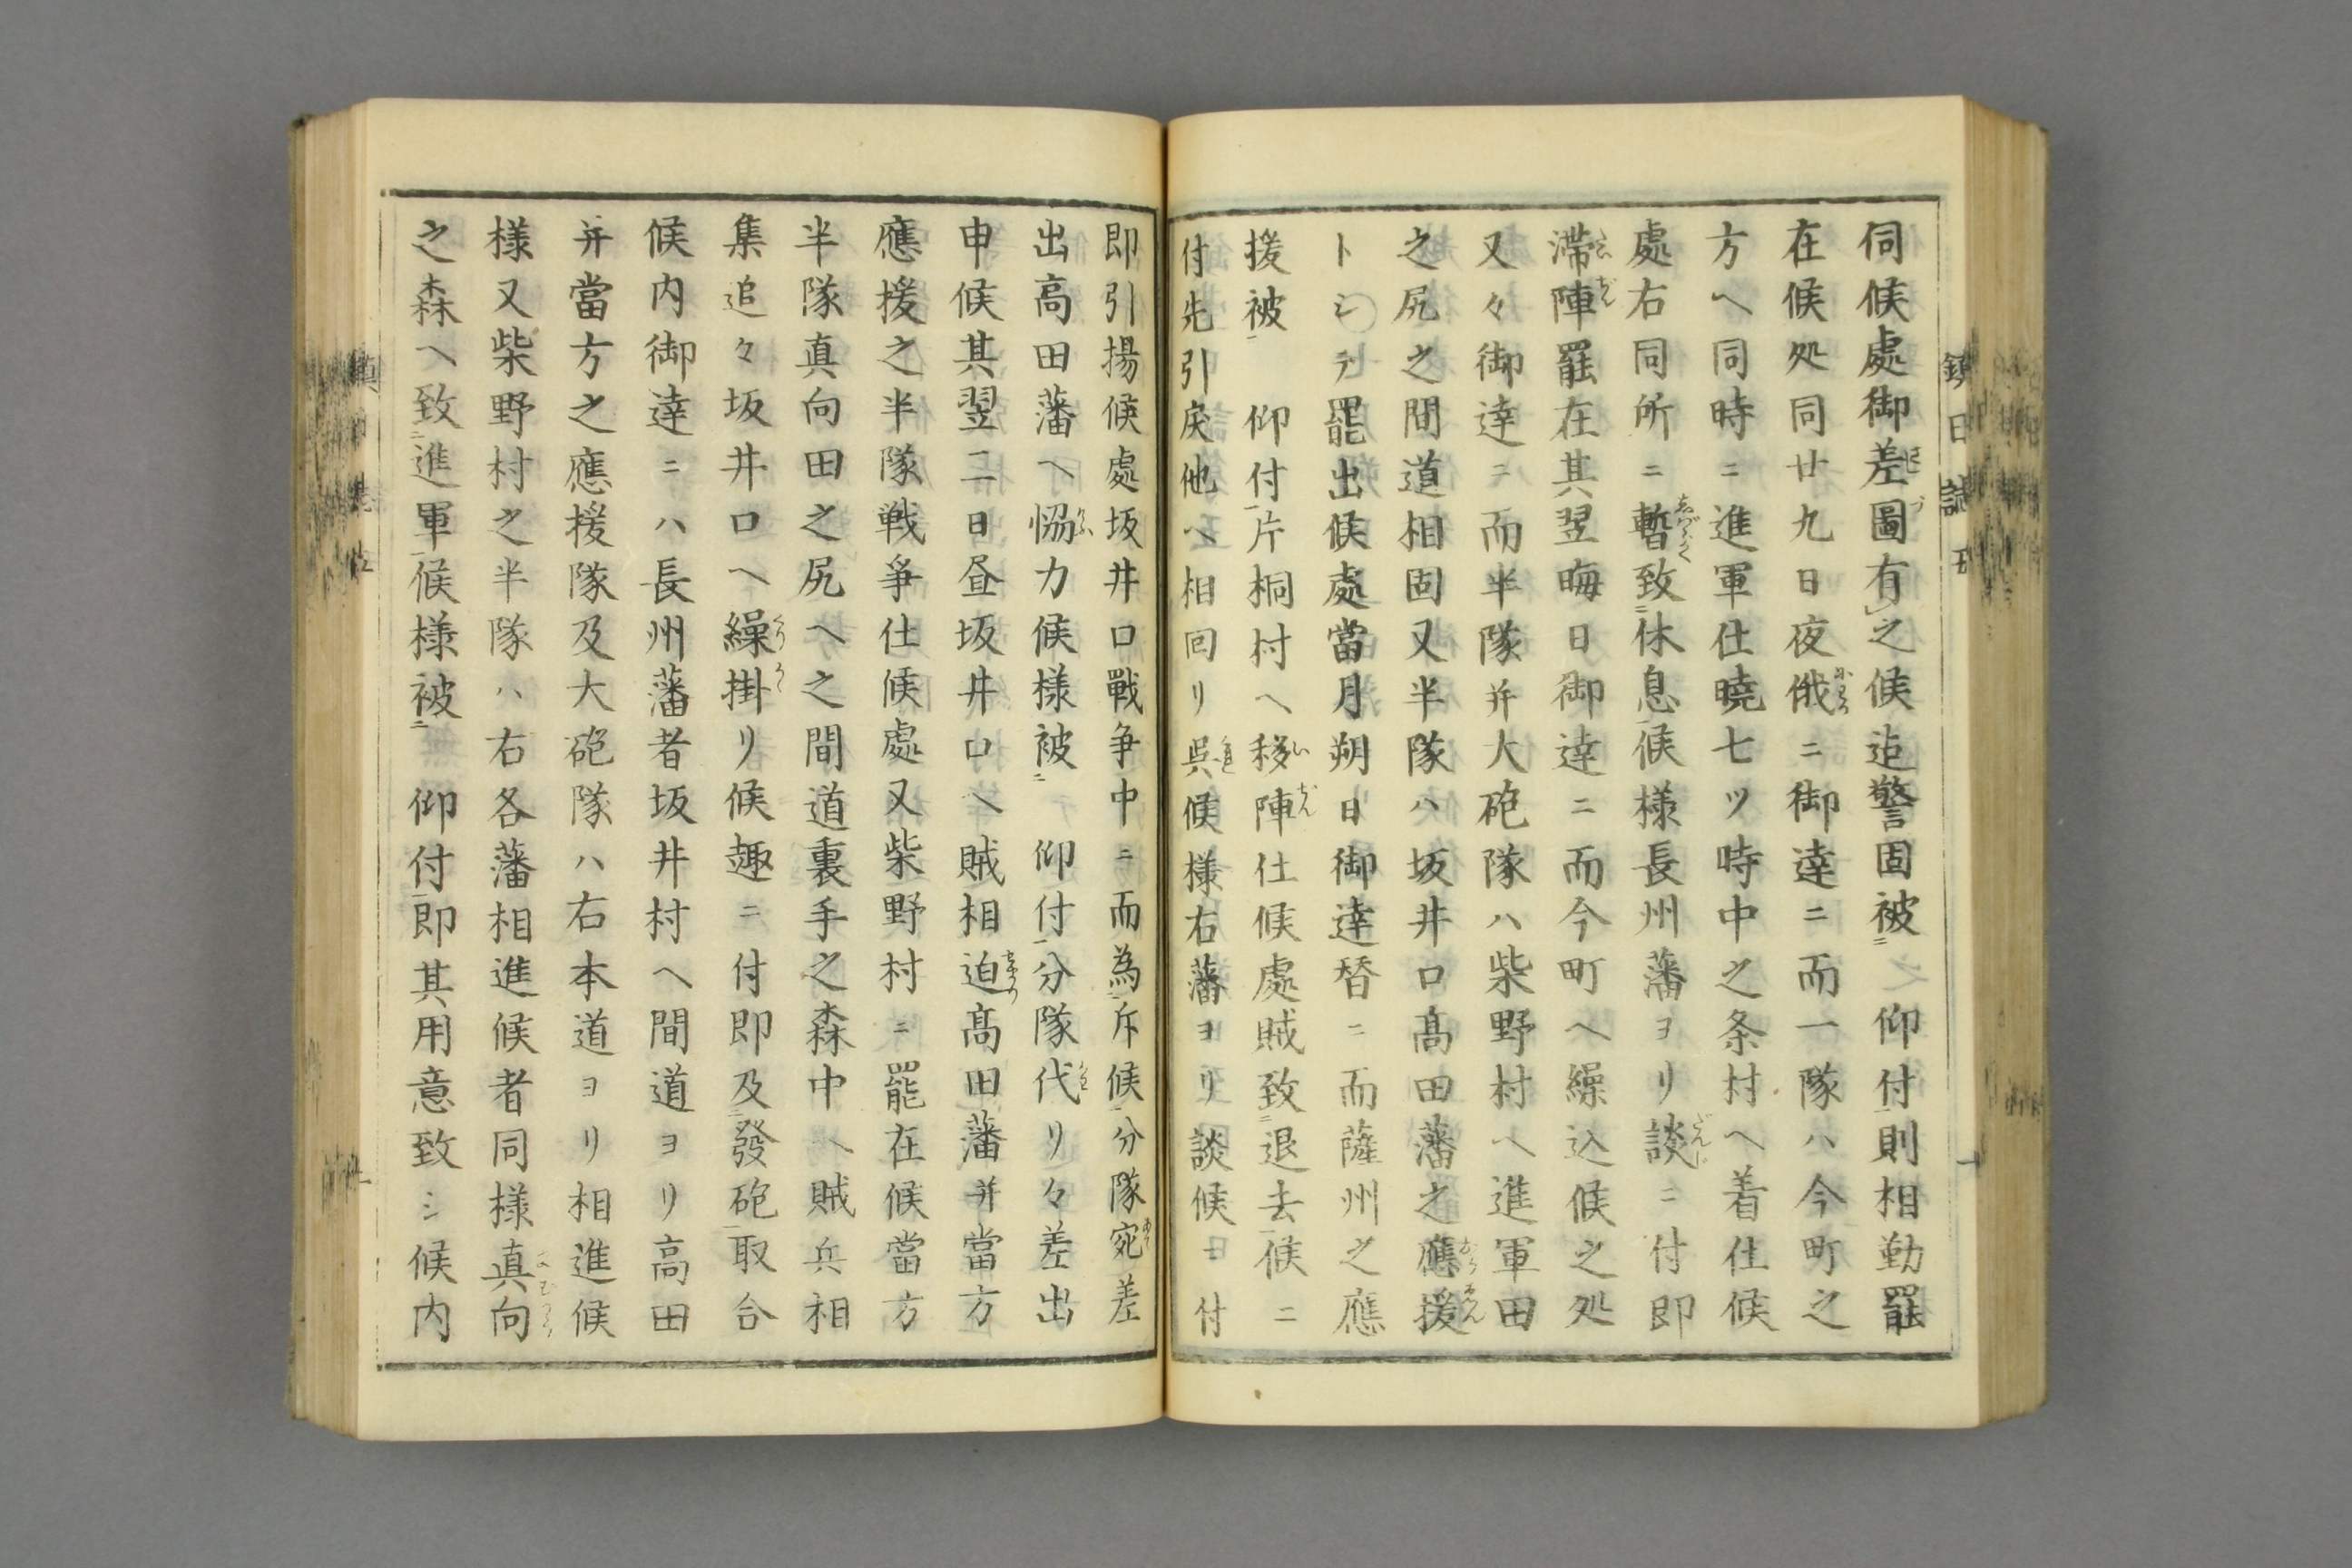 伺候處御差圖有之候迠警固被二仰付一則相勤罷
在候処同廿九日夜俄ニ御達ニ而一隊ハ今町之
方ヘ同時ニ進軍仕曉七ツ時中之条村ヘ着仕候
處右同所ニ暫致二休息一候様長州藩ヨリ談ニ付即
滞陣罷在其翌晦日御達ニ而今町ヘ繰込候之処
又々御達ニ而半隊并大砲隊ハ柴野村ヘ進軍田
之尻之間道相固又半隊ハ坂井口髙田藩之應援
トシテ罷出候處當月朔日御達替ニ而薩州之應
援被二 仰付一片桐村ヘ移陣仕候處賊致二退去一候ニ
付先引戻他ヘ相回リ呉候様右藩ヨリ談候ニ付
即引揚候處坂井口戰争中ニ而為二斥候一分隊宛差
出高田藩ヘ恊力候様被二 仰付一分隊代リ々差出
申候其翌二日昼坂井口ヘ賊相迫髙田藩并當方
應援之半隊戦爭仕候處又柴野村ニ罷在候當方
半隊真向田之尻ヘ之間道裏手之森中ヘ賊兵相
集追々坂井口ヘ繰掛リ候趣ニ付即及二發砲一取合
候内御達ニハ長州藩者坂井村ヘ間道ヨリ高田
并當方之應援隊及大砲隊ハ右本道ヨリ相進候
様又柴野村之半隊ハ右各藩相進候者同様真向
之森ヘ致二進軍一候様被二 仰付一即其用意致シ候内